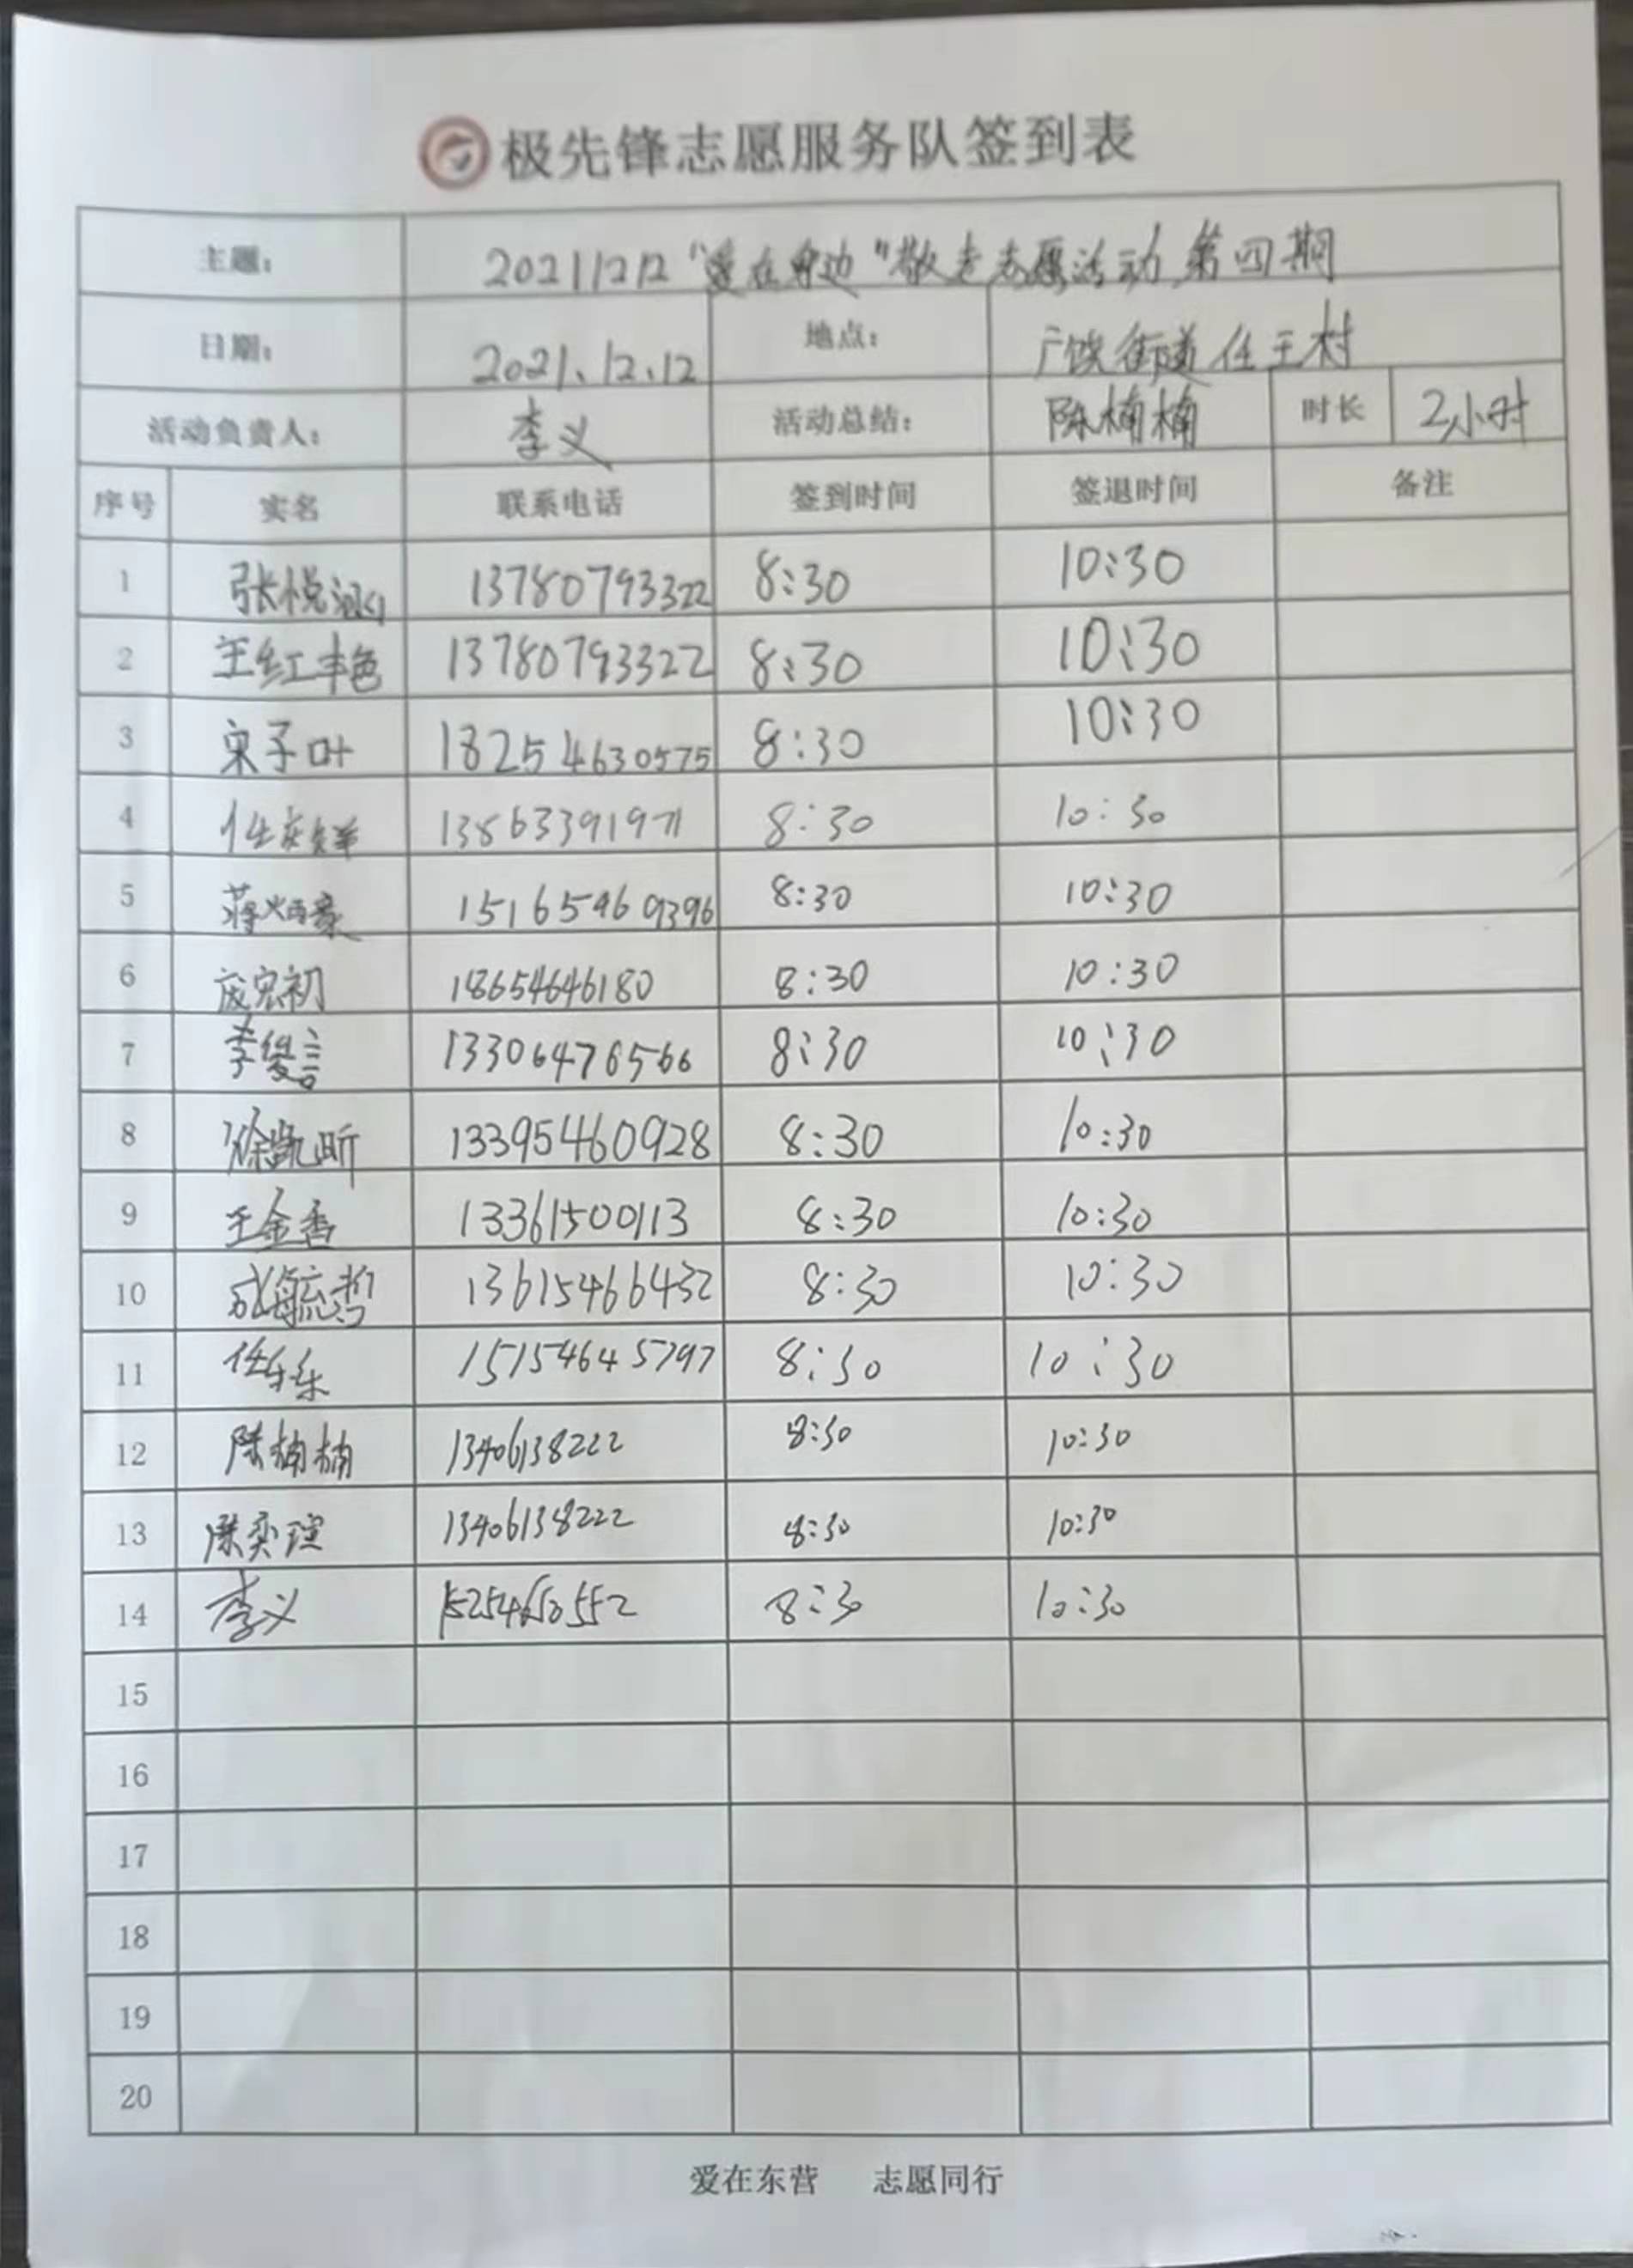 极先锋志愿服务队签到表
主题： 20211212 "爱在身边"敬老志愿活动 第四期
日期： 2021.12.12 地点： 广饶街道任王村
活动负责人： 李义 活动总结： 陈楠楠 时长 2小时
序号 实名 联系电话 签到时间 签退时间 备注
1 张悦 13780793322 8:30 10:30
2 王红艳 13780793322 8:30 10:30
3 宋子叶 18254630575 8:30 10:30
4 任 13863391971 8:30 10:30
5 蒋炳豪 15165469396 8:30 10:30
6 庞宏初 18654646180 8:30 10:30
7 李俊言 13306476566 8:30 10:30
8 徐凯昕 13395460928 8:30 10:30
9 王金香 13361500113 8:30 10:30
10 成毓哲 13615466432 8:30 10:30
11 任乐乐 15154645797 8:30 10:30
12 陈楠楠 13406138222 8:30 10:30
13 陈奕瑄 13406138222 8:30 10:30
14 李义 8:30 10:30
15
16
17
18
19
20
爱在东营 志愿同行